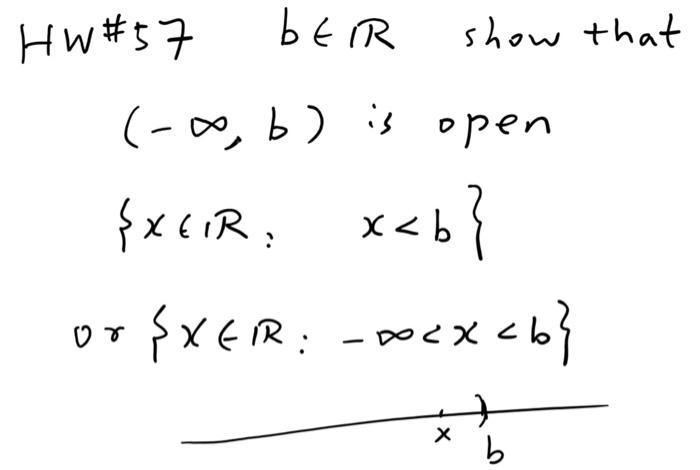 HW#57 b∈ℝ show that
(-∞, b) is open
{x∈ℝ: x<b}
or {x∈ℝ: -∞<x<b}
x b